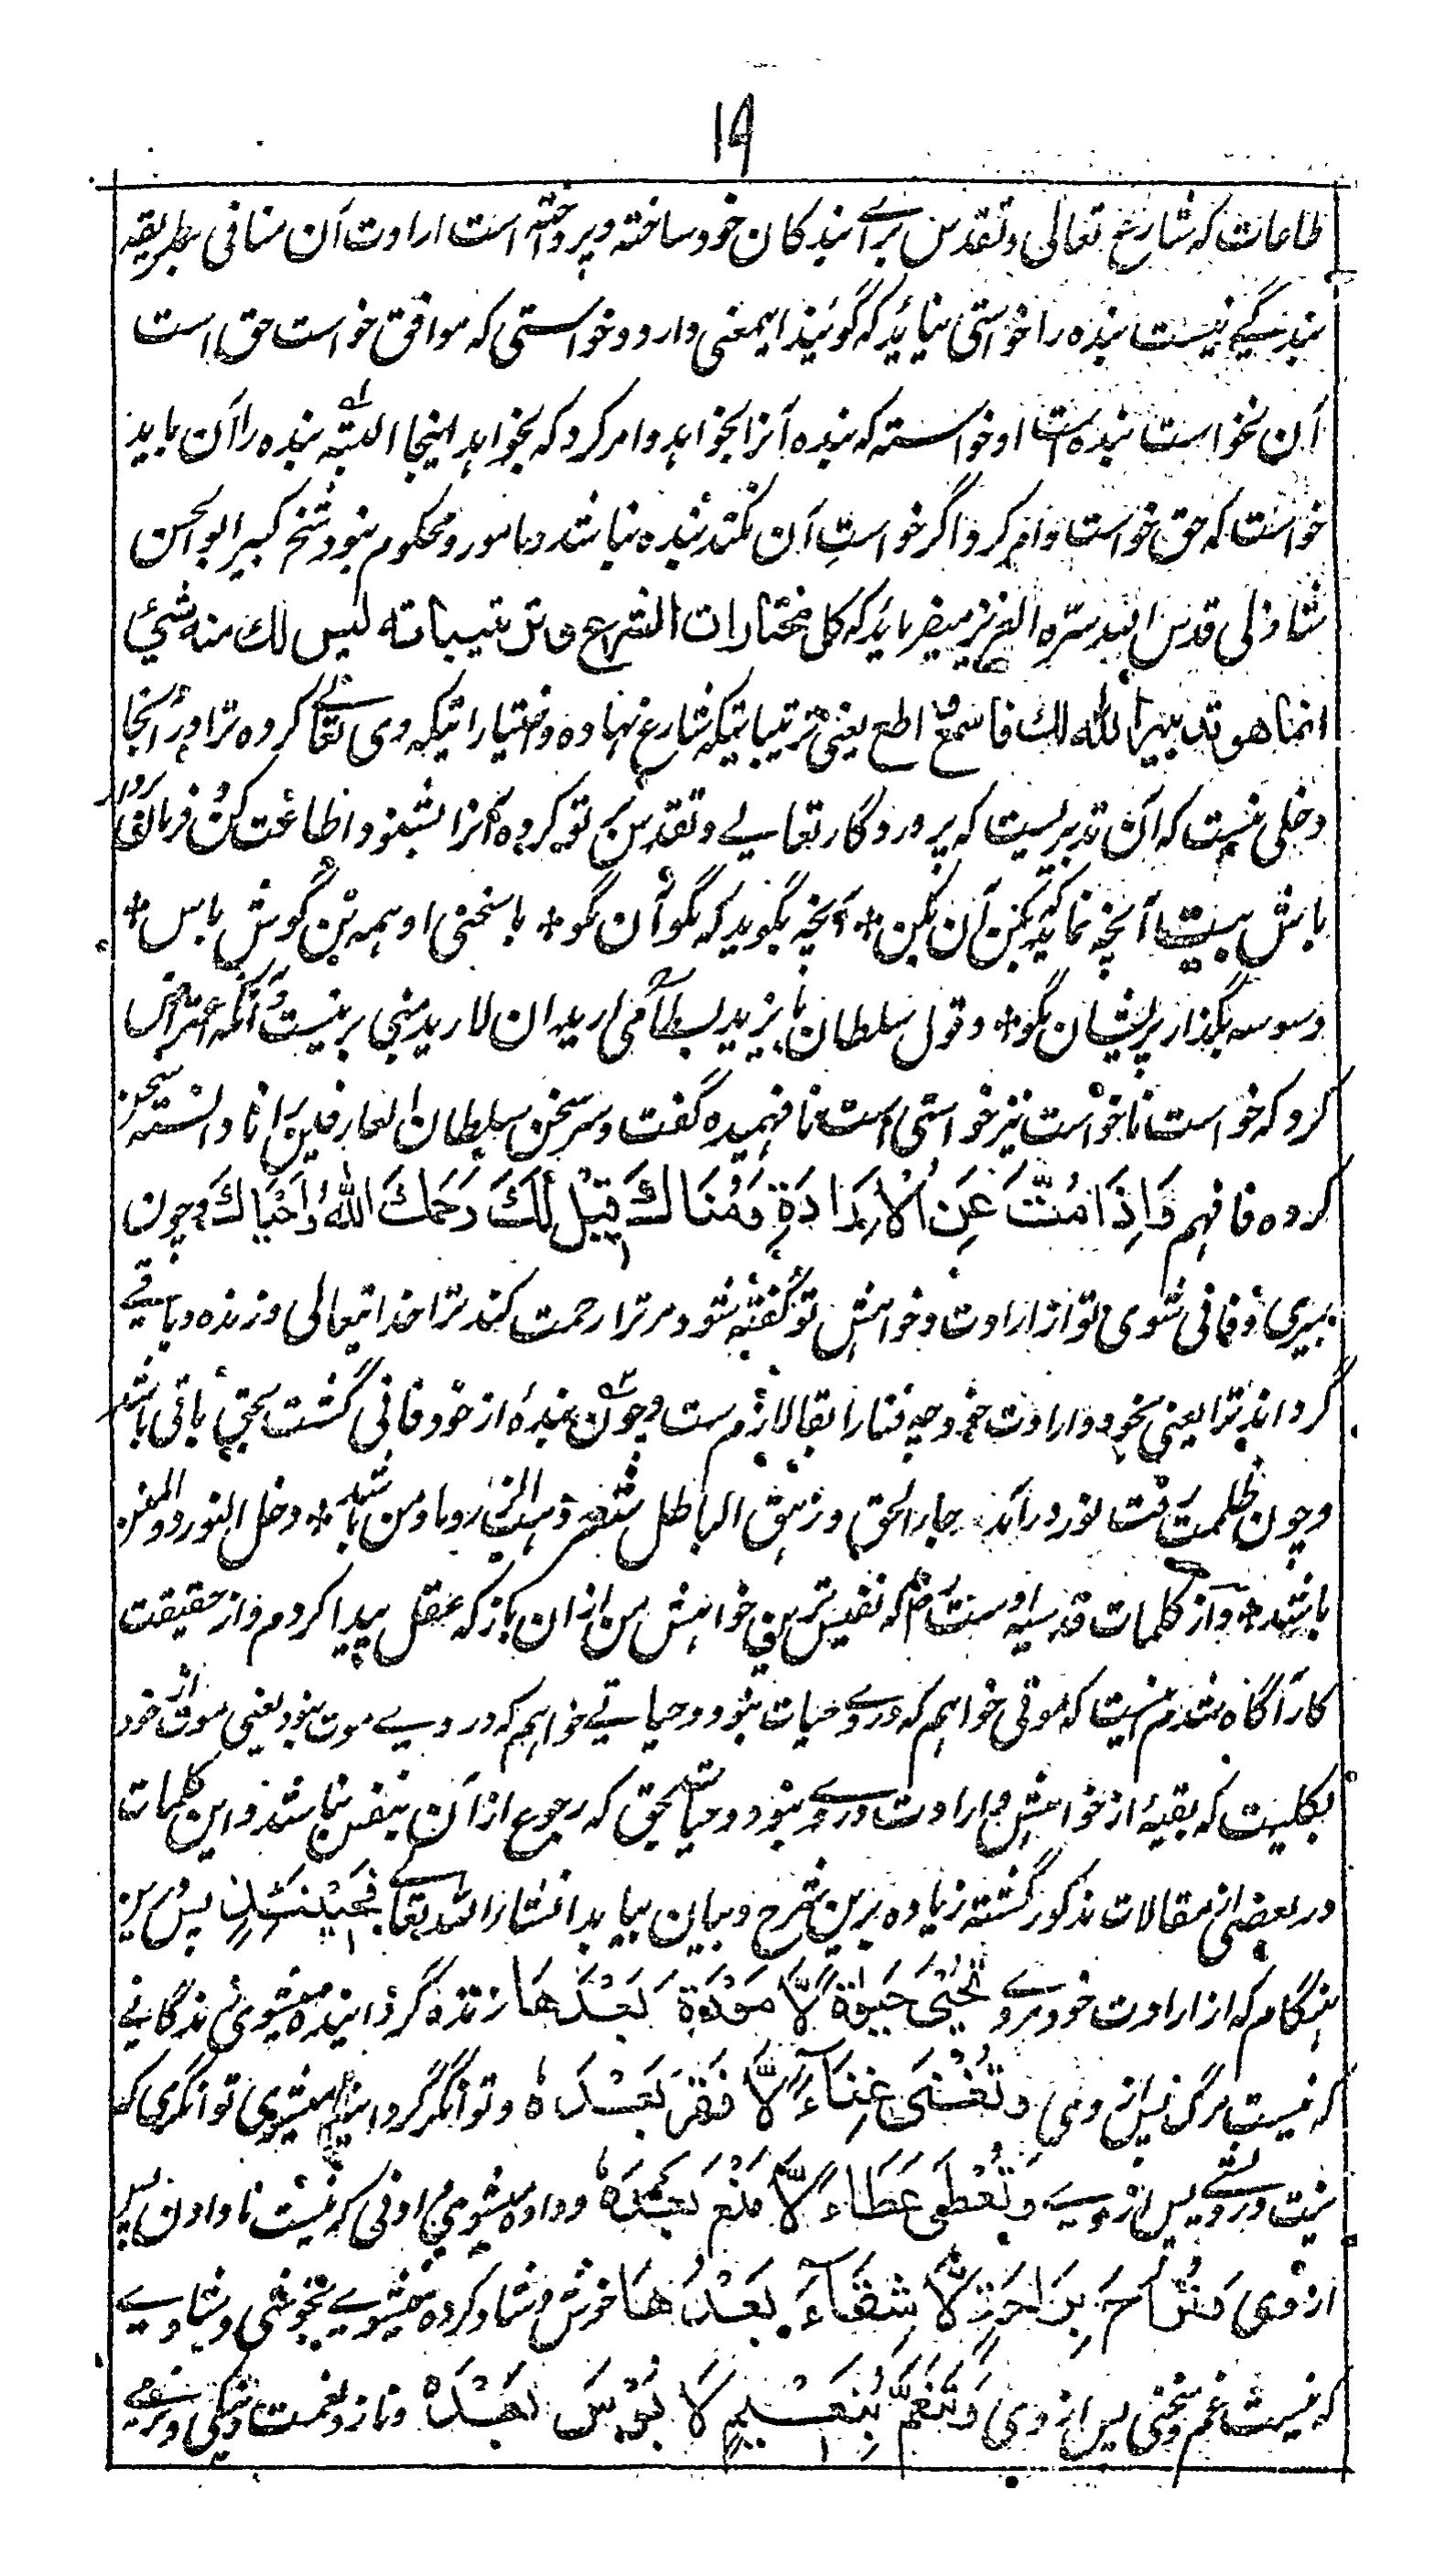 ۱۹
طاعات که شارع تعالی و تقدس برای بندگان خود ساخته و پرداخته است ارادت آن منافی طریقه
بندگی نیست بنده را خواستی نباید که گویند اینمعنی دارد و خواستی که موافق خواست حق است
آن نخواست بنده است او خواسته که بنده آنرا بخواهد و امر کرد که بخواهد اینجا البته بنده را آن باید
خواست که حق خواست و امر کرد و اگر خواست آن نکند بنده نباشد و مامور و محکوم نبود شیخ کبیر ابوالحسن
شاذلی قدس الله سره العزیز میفرماید که کل مختارات الشرع و ترتیباته لیس لك منه شیٔ
انما هو تدبیر الله لك فاسمع و اطع یعنی ترتیباتیکه شارع نهاده و اختیاراتیکه وی تعالے کرده ترا در آنجا
دخلی نیست که آن تدبیریست که پروردگار تعالے و تقدس بر تو کرده آنرا بشنو و اطاعت کن و فرمانبردار
باش بیت آنچه نماید که بکن آن بکن + آنچه بگوید که بگو آن بگو + با سخن او همه تن گوش باش +
وسوسه بگذار پریشان مگو + و قول سلطان بایزید بسطامی ارید ان لا ارید مبنی برینست و آنکه اعتراض
کرد که خواست ناخواست نیز خواستی است نافهمیده گفت و سر سخن سلطان العارفین را نادانسته سخن
کرده فافهم وَاِذَا مُتَّ عَنِ الْاِرَادَةِ وَمُنَاكَ قِیْلَ لَكَ رَحِمَكَ اللّٰهُ وَاَحْیَاكَ و چون
بمیری و فانی شوی تو از ارادت و خواهش تو گفته شود مر ترا رحمت کند ترا خدا تعالی و زنده و باقی
گرداند ترا یعنی بخود و ارادت خود چه فنا را بقا لازم ست و چون بنده از خود فانی گشت بحق باقی باشد
و چون ظلمت رفت نور درآید جاء الحق و زهق الباطل شعر
باشد + و از کلمات قدسیه اوست که نفیس ترین خواهش من ازان باز که عقل پیدا کردم و از حقیقت
کار آگاه شدم اینست که موتی خواهم که در وے حیات نبود و حیاتے خواهم که در وے موت نبود یعنی موت از خود
بکلیت که بقیهٔ از خواهش و ارادت در وے نبود و حیات بحق که رجوع ازان بنفس نباشد و این کلمات
در بعضی از مقالات مذکور گشته زیاده برین شرح و بیان بیابد انشاء الله تعالے فَحِیْنَئِذٍ پس درین
هنگام که از ارادت خود مردی تُحْیٰی حَیٰوةً لَّا مَوْتَ بَعْدَهَا زنده گردانیده میشوی زندگانی
که نیست مرگ پس از وی وَتُغْنٰی غِنَآءً لَّا فَقْرَ بَعْدَهٗ و توانگر گردانیده میشوی توانگری که
نیست درویشی پس از وے وَتُعْطٰی عَطَاءً لَّا مَنْعَ بَعْدَهٗ و داده میشوی دادنی که نیست نادادن پس
از وی وَتُرَاحَ بِرَاحَةٍ لَّا شِقَآءَ بَعْدَهَا خوش و شاد کرده میشوے بخوشی و شادی
که نیست غم و سختی پس از وی وَتَنَعَّمُ بِنَعِیْمٍ لَا بُوْسَ بَعْدَهٗ و ناز و نعمت و نیکی و نرمی